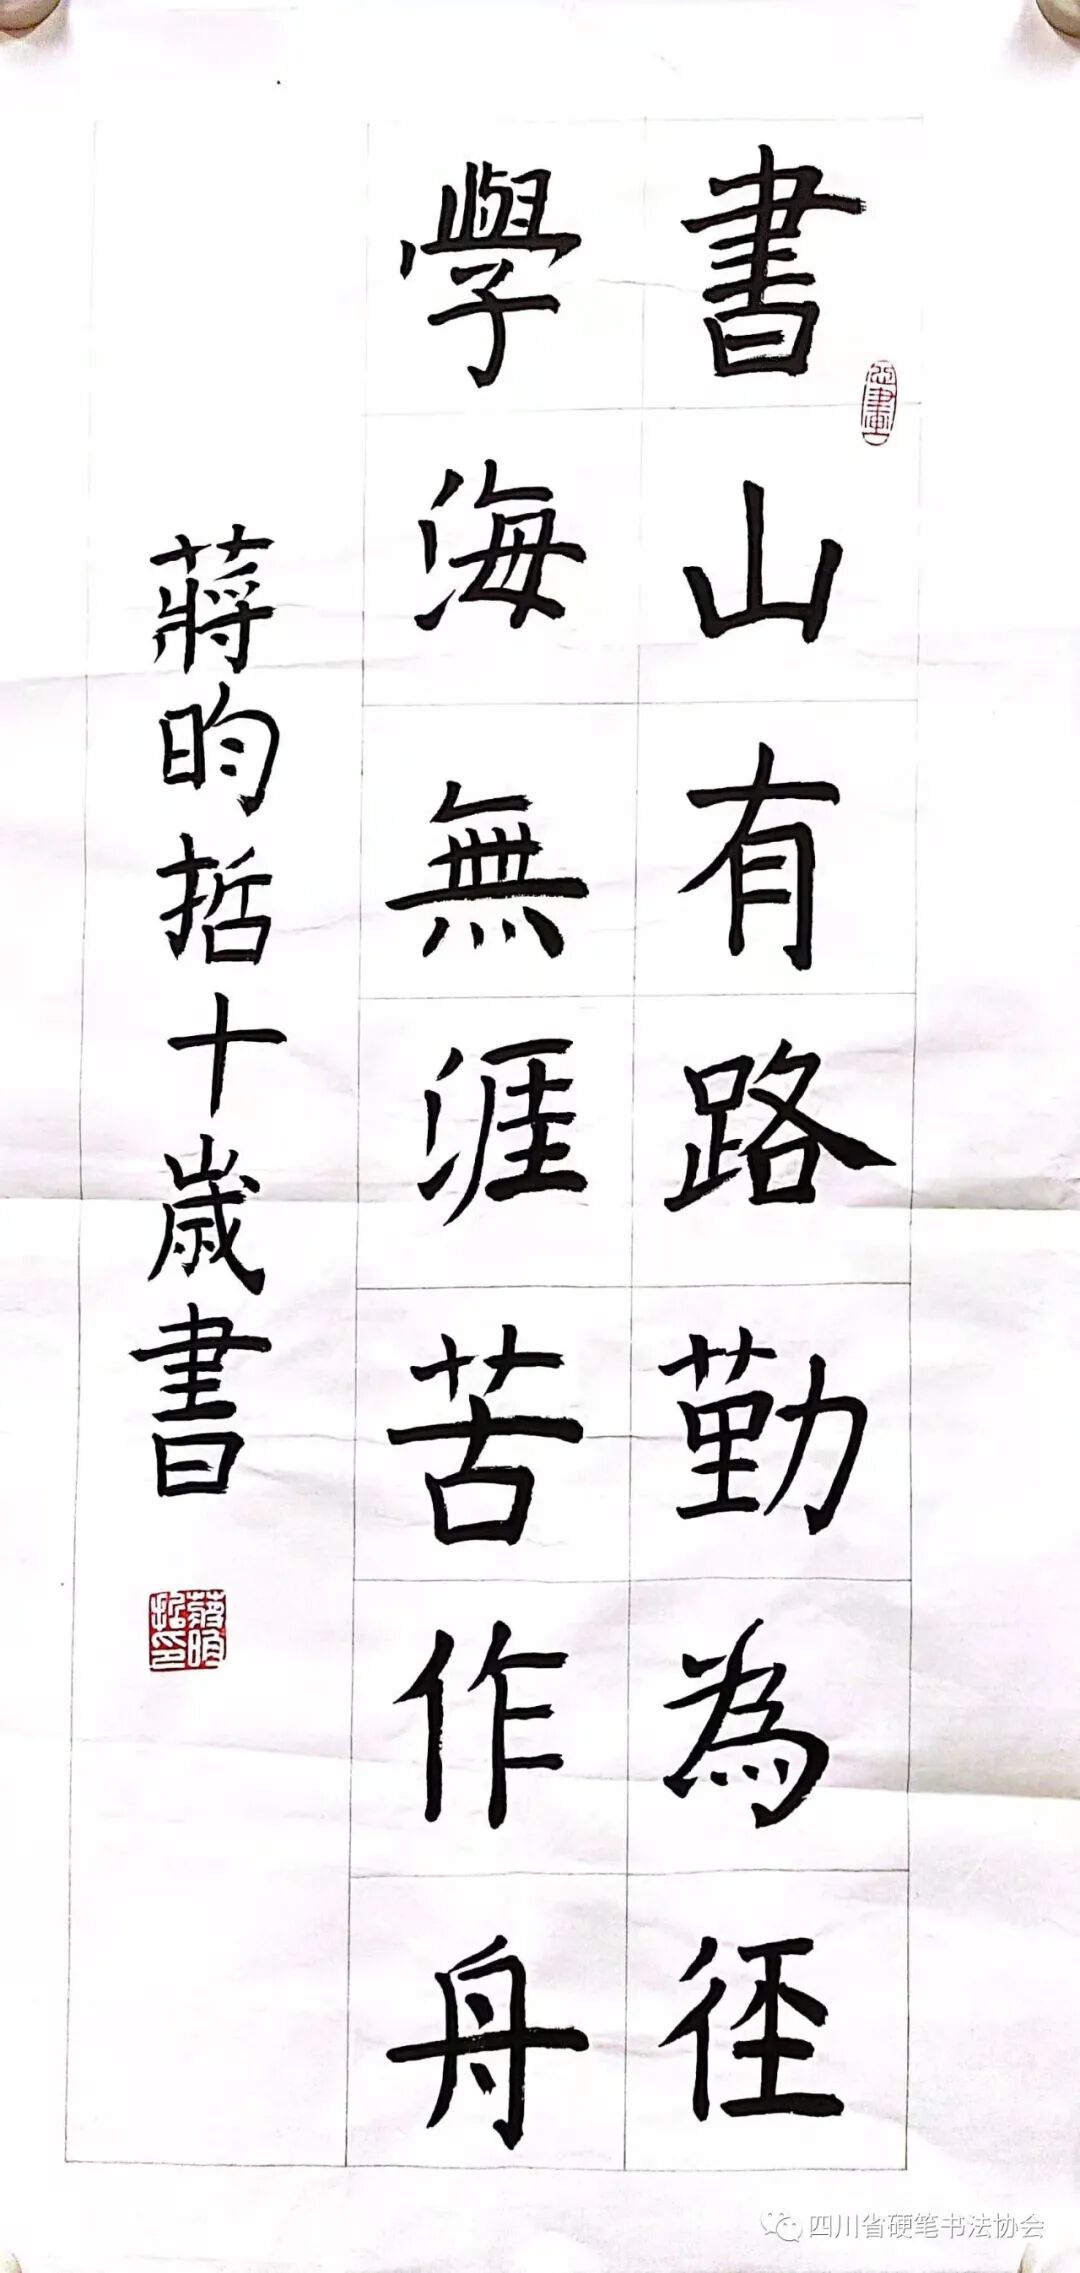 書山有路勤為徑
學海無涯苦作舟
蔣昀哲十歲書
四川省硬笔书法协会